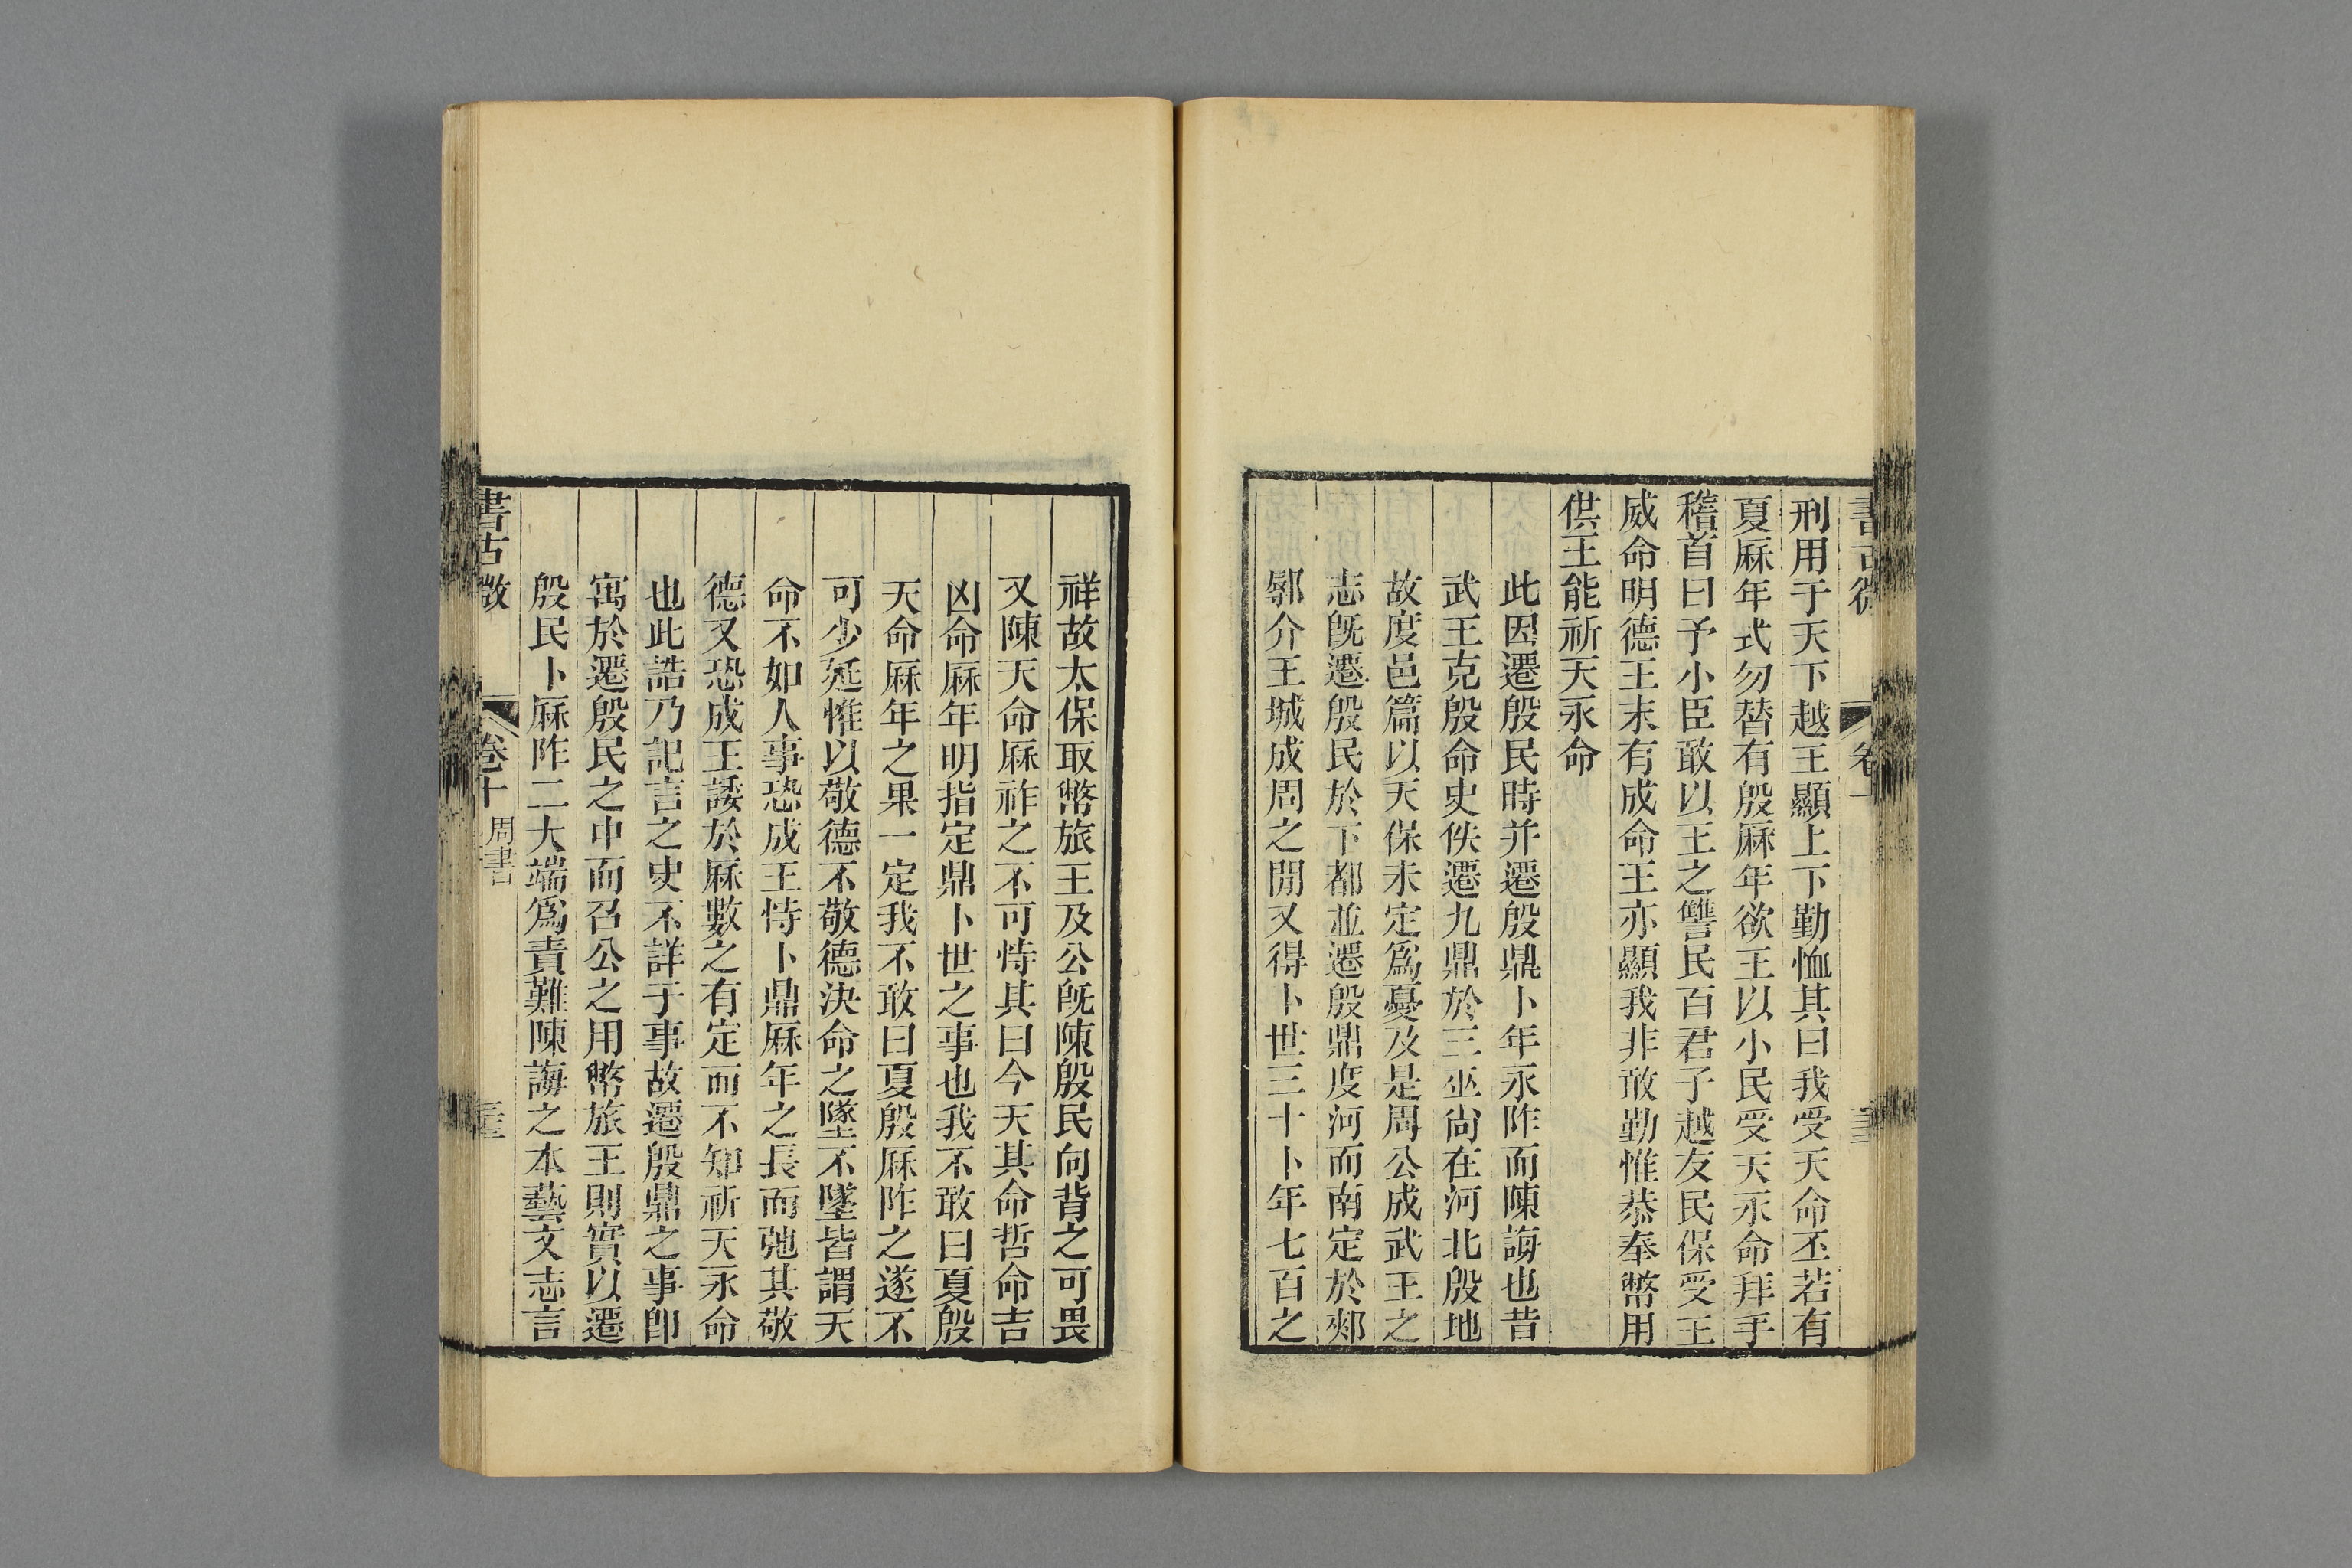 刑用于天下越王顯上下勤恤其曰我受天命丕若有
夏厤年式勿替有殷厤年欲王以小民受天永命拜手
稽首曰予小臣敢以王之讐民百君子越友民保受王
威命明德王末有成命王亦顯我非敢勤惟恭奉幣用
供王能祈天永命
此因遷殷民時并遷殷鼎卜年永阼而陳誨也昔
武王克殷命史佚遷九鼎於三巫尙在河北殷地
故度邑篇以天保未定爲憂及是周公成武王之
志旣遷殷民於下都並遷殷鼎度河而南定於郟
鄏介王城成周之閒又得卜世三十卜年七百之
祥故太保取幣旅王及公旣陳殷民向背之可畏
又陳天命厤祚之不可恃其曰今天其命哲命吉
凶命厤年明指定鼎卜世之事也我不敢曰夏殷
天命厤年之果一定我不敢曰夏殷厤阼之遂不
可少延惟以敬德不敬德決命之墜不墜皆謂天
命不如人事恐成王恃卜鼎厤年之長而弛其敬
德又恐成王諉於厤數之有定而不知祈天永命
也此誥乃記言之史不詳于事故遷殷鼎之事卽
寓於遷殷民之中而召公之用幣旅王則實以遷
殷民卜厤阼二大端爲責難陳誨之本藝文志言
書古微
卷十
周書